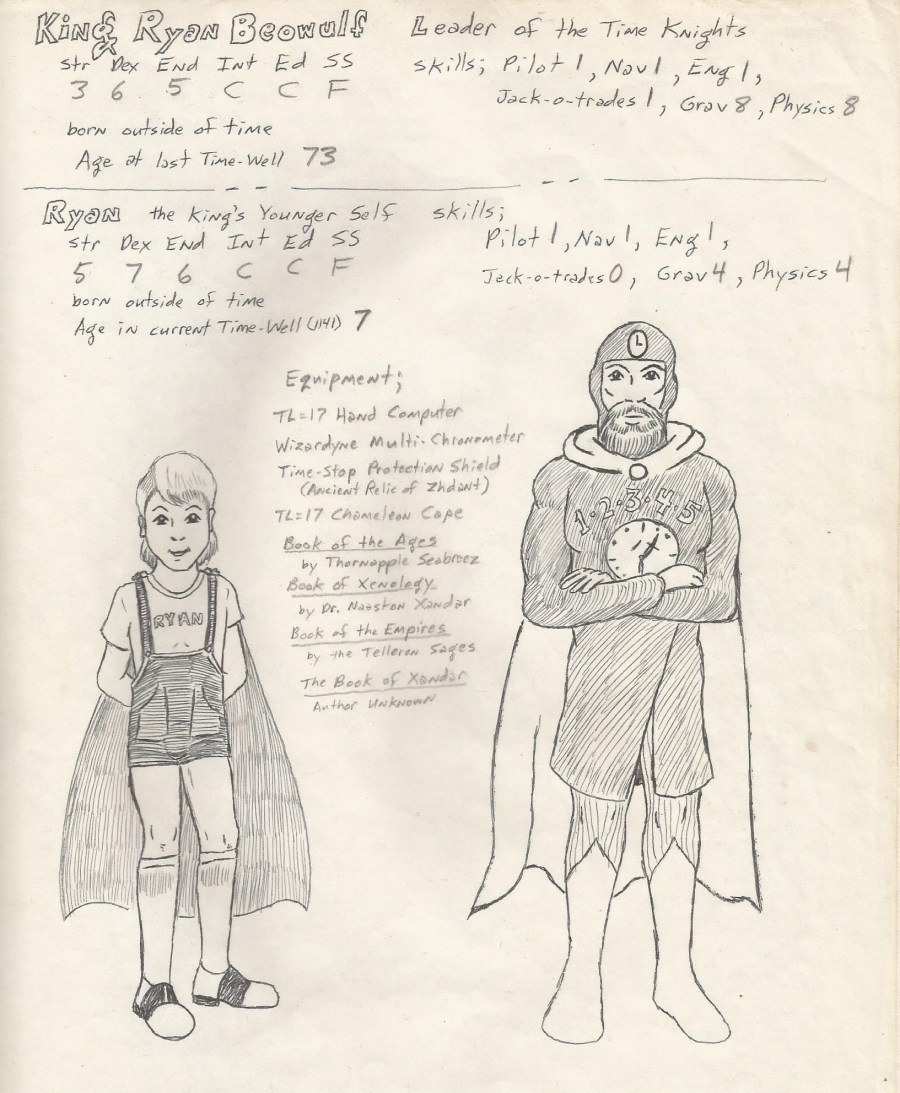 King Ryan Beowulf
Leader of the Time Knights
Str Dex End Int Ed SS
3 6 5 C C F
skills; Pilot 1, Nav 1, Eng 1,
Jack-o-trades 1, Grav 8, Physics 8
born outside of time
Age at last Time-Well 73
Ryan the King's Younger Self
Str Dex End Int Ed SS
5 7 6 C C F
skills;
Pilot 1, Nav 1, Eng 1,
Jack-o-trades 0, Grav 4, Physics 4
born outside of time
Age in current Time-Well (1141) 7
Equipment;
TL=17 Hand Computer
Wizardyne Multi-Chronometer
Time-Stop Protection Shield
(Ancient Relic of Zhdant)
TL=17 Chameleon Cape
Book of the Ages
by Thornapple Seabreez
Book of Xenology
by Dr. Naaston Xandar
Book of the Empires
by the Telleron Sages
The Book of Xandar
Author Unknown
RYAN
L
1·2·3·4·5